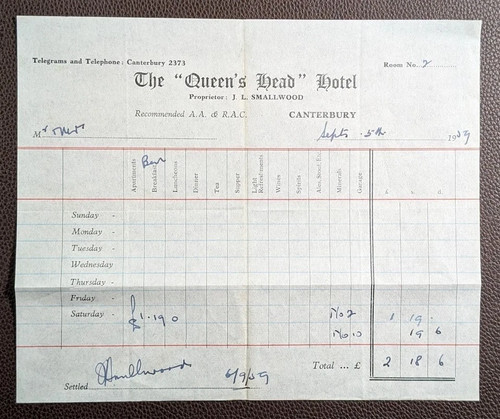 Telegrams and Telephone: Canterbury 2373
Room No. 2
The "Queen's Head" Hotel
Proprietor: J. L. SMALLWOOD
Recommended A.A. & R.A.C. CANTERBURY
M Septr. 5th 1959
Apartments
Bed
Breakfasts
Luncheons
Dinner
Tea
Supper
Light Refreshments
Wines
Spirits
Ales, Stout, Etc.
Minerals
Garage
Sunday -
Monday -
Tuesday -
Wednesday -
Thursday -
Friday -
Saturday - £1.19.0 No 2 1 19 .
No 10 19 6
Total ... £ 2 18 6
Settled JSmallwood 6/9/59